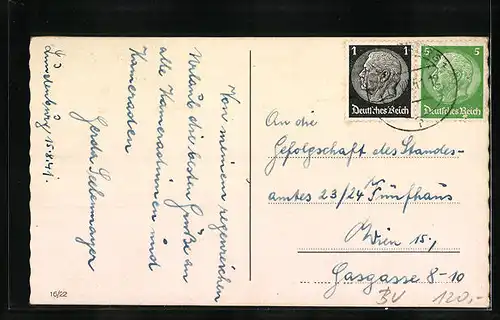 Lundenburg, 15.8.41.
Von meinem regenreichen
Urlaub die besten Grüße an
alle Kameradinnen und
Kameraden
Gerda
16/22
1 1
Deutsches Reich
5 5
Deutsches Reich
An die
Gefolgschaft des Standes-
amtes 23/24 Fünfhaus
Wien 15,
Gasgasse 8-10
BV 120,-